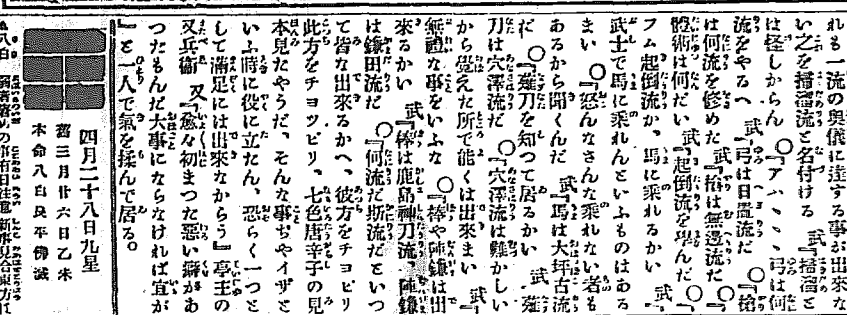 れも一流の奧儀に達する事が出來な
い之を掃溜流と名付ける 武『掃溜と
は怪しからん 〇『アハヽヽヽ弓は何
流をやるへ 武『弓は日置流だ 〇『槍
は何流を修めた 武『槍は無邊流だ 〇『
體術は何だい 武『起倒流を學んだ 〇『
フム起倒流か、馬に乘れるかい 武『
武士で馬に乘れんといふものはある
まい 〇『怒んなさんな乘れない者も
あるから聞くんだ 武『馬は大坪古流
だ 〇『薙刀を知つて居るかい 武『薙
刀は穴澤流だ 〇『穴澤流は難かしい
から覺えた所で能くは出來まい 武『
無禮な事をいふな 〇『棒や陣鎌は出
來るかい 武『棒は鹿島神刀流、陣鎌
は鎌田流だ 〇『何流だ斯流だといつ
て皆な出來るかへ、彼方をチヨビリ
此方をチヨツピリ、七色唐辛子の見
本見たやうだ、そんな事ぢやイザと
いふ時に役に立たん、恐らく一つと
して滿足には出來なからう』亭主の
又兵衞 又『愈々初まつた惡い癖があ
つたもんだ大事にならなければ宜が
』と一人で氣を揉んで居る。
四月二十八日九星
舊三月廿六日乙未
本命八白艮平佛滅